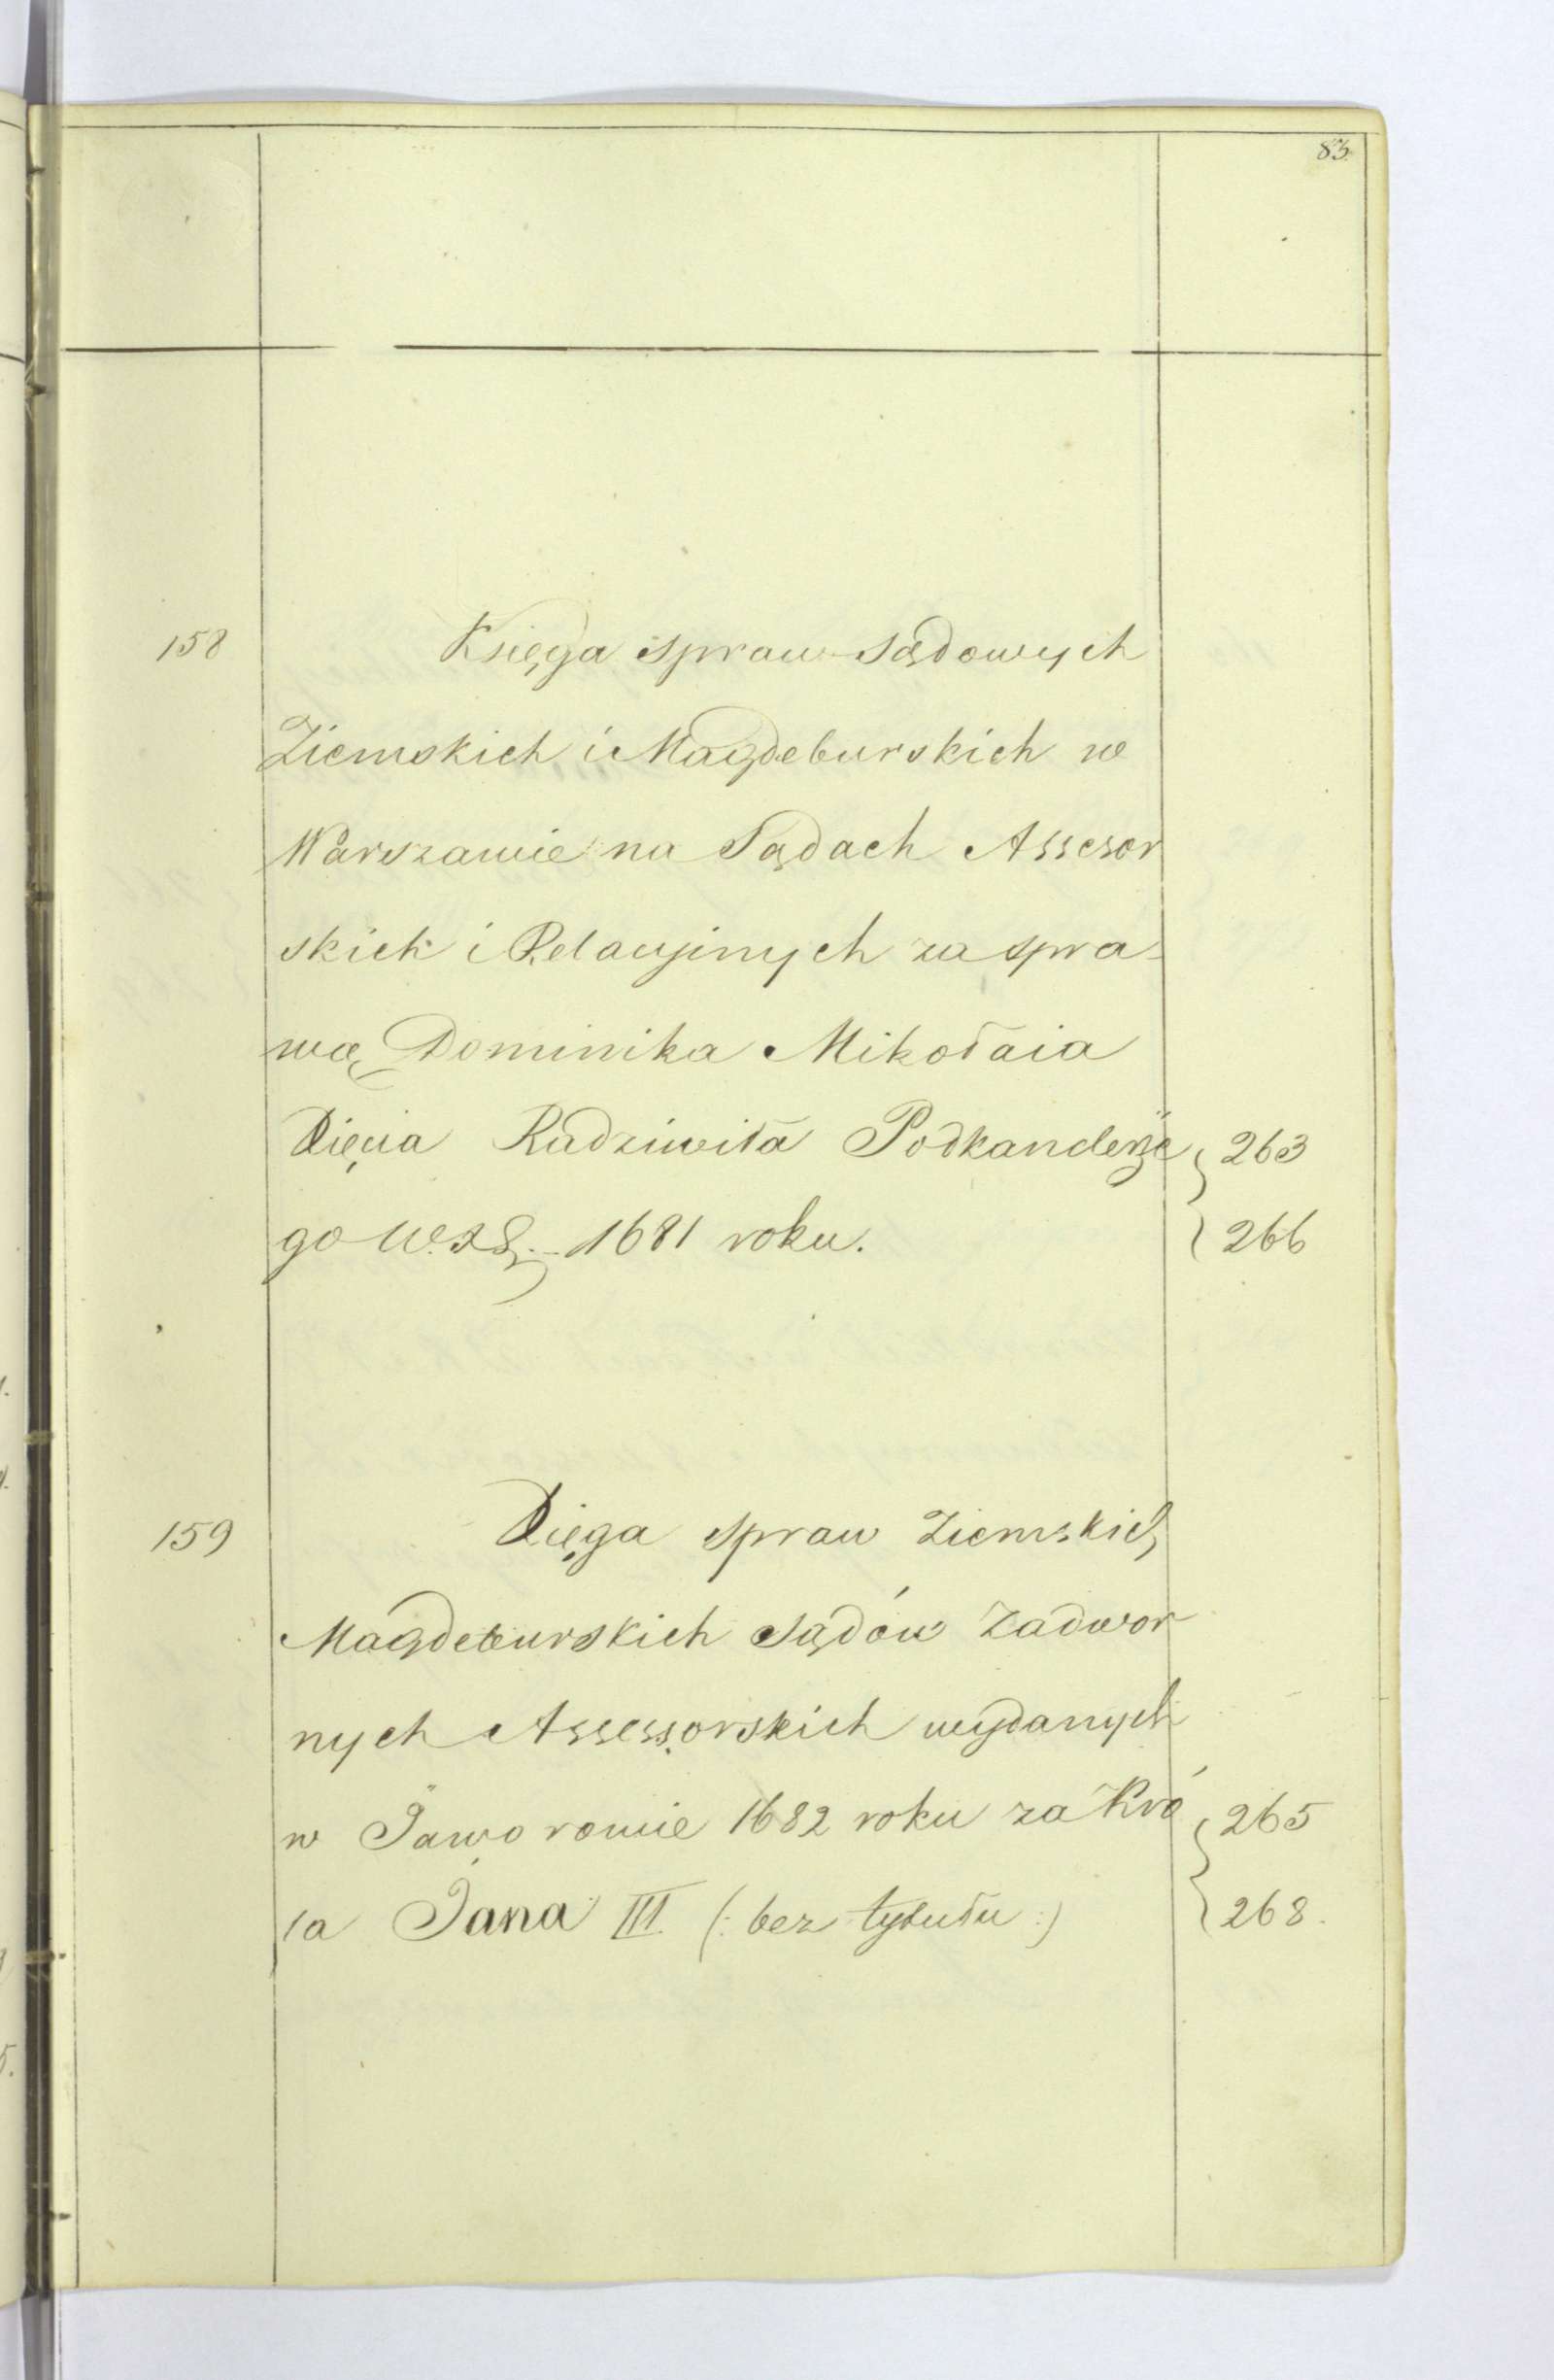 83.
158 Księga spraw sądowych
Ziemskich i Magdeburskich w
Warszawie na Sądach Assesor
skich i Relacyjnych za spra-
wą Dominika Mikołaia
Xięcia Radziwiła Podkanclerze 263
go 1681 roku. 266
159 Xięga spraw Ziemskich
Magdeburskich Sądów Zadwor
nych Assessorskich wydanych
w Jaworowie 1682 roku za Kró 265
la Jana III. (: bez tytułu :) 268.